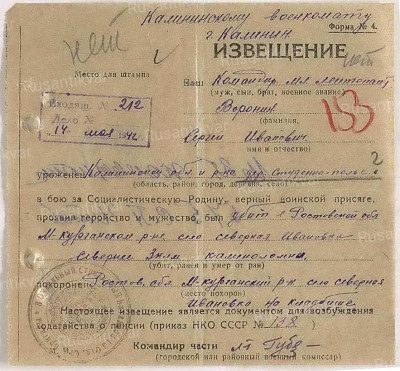 Калининскому военкомату
г. Калинин
Форма № 4.
нет
ИЗВЕЩЕНИЕ
Место для штампа
Ваш Командир Мл лейтенант
(муж, сын, брат, военное звание)
Воронин
(фамилия,
Входящ. N 212
Дело №
14 мая 1942
153
Сергей Иванович
имя и отчество)
2
уроженец Калининской обл и р-на дер. Студеное-поле
(область, район, город, деревня, село)
в бою за Социалистическую Родину, верный воинской присяге,
проявив геройство и мужество, был убит в Ростовской обл
М-курганском р-не село северная Ивановка
севернее 3км каменоломни
(убит, ранен и умер от ран)
похоронен Ростов. обл М-курганский р-н село северная
(место похорон)
Ивановка на кладбище
Настоящее извещение является документом для возбуждения
ходатайства о пенсии (приказ НКО СССР № 138.)
Командир части
(городской или районный военный комиссар)